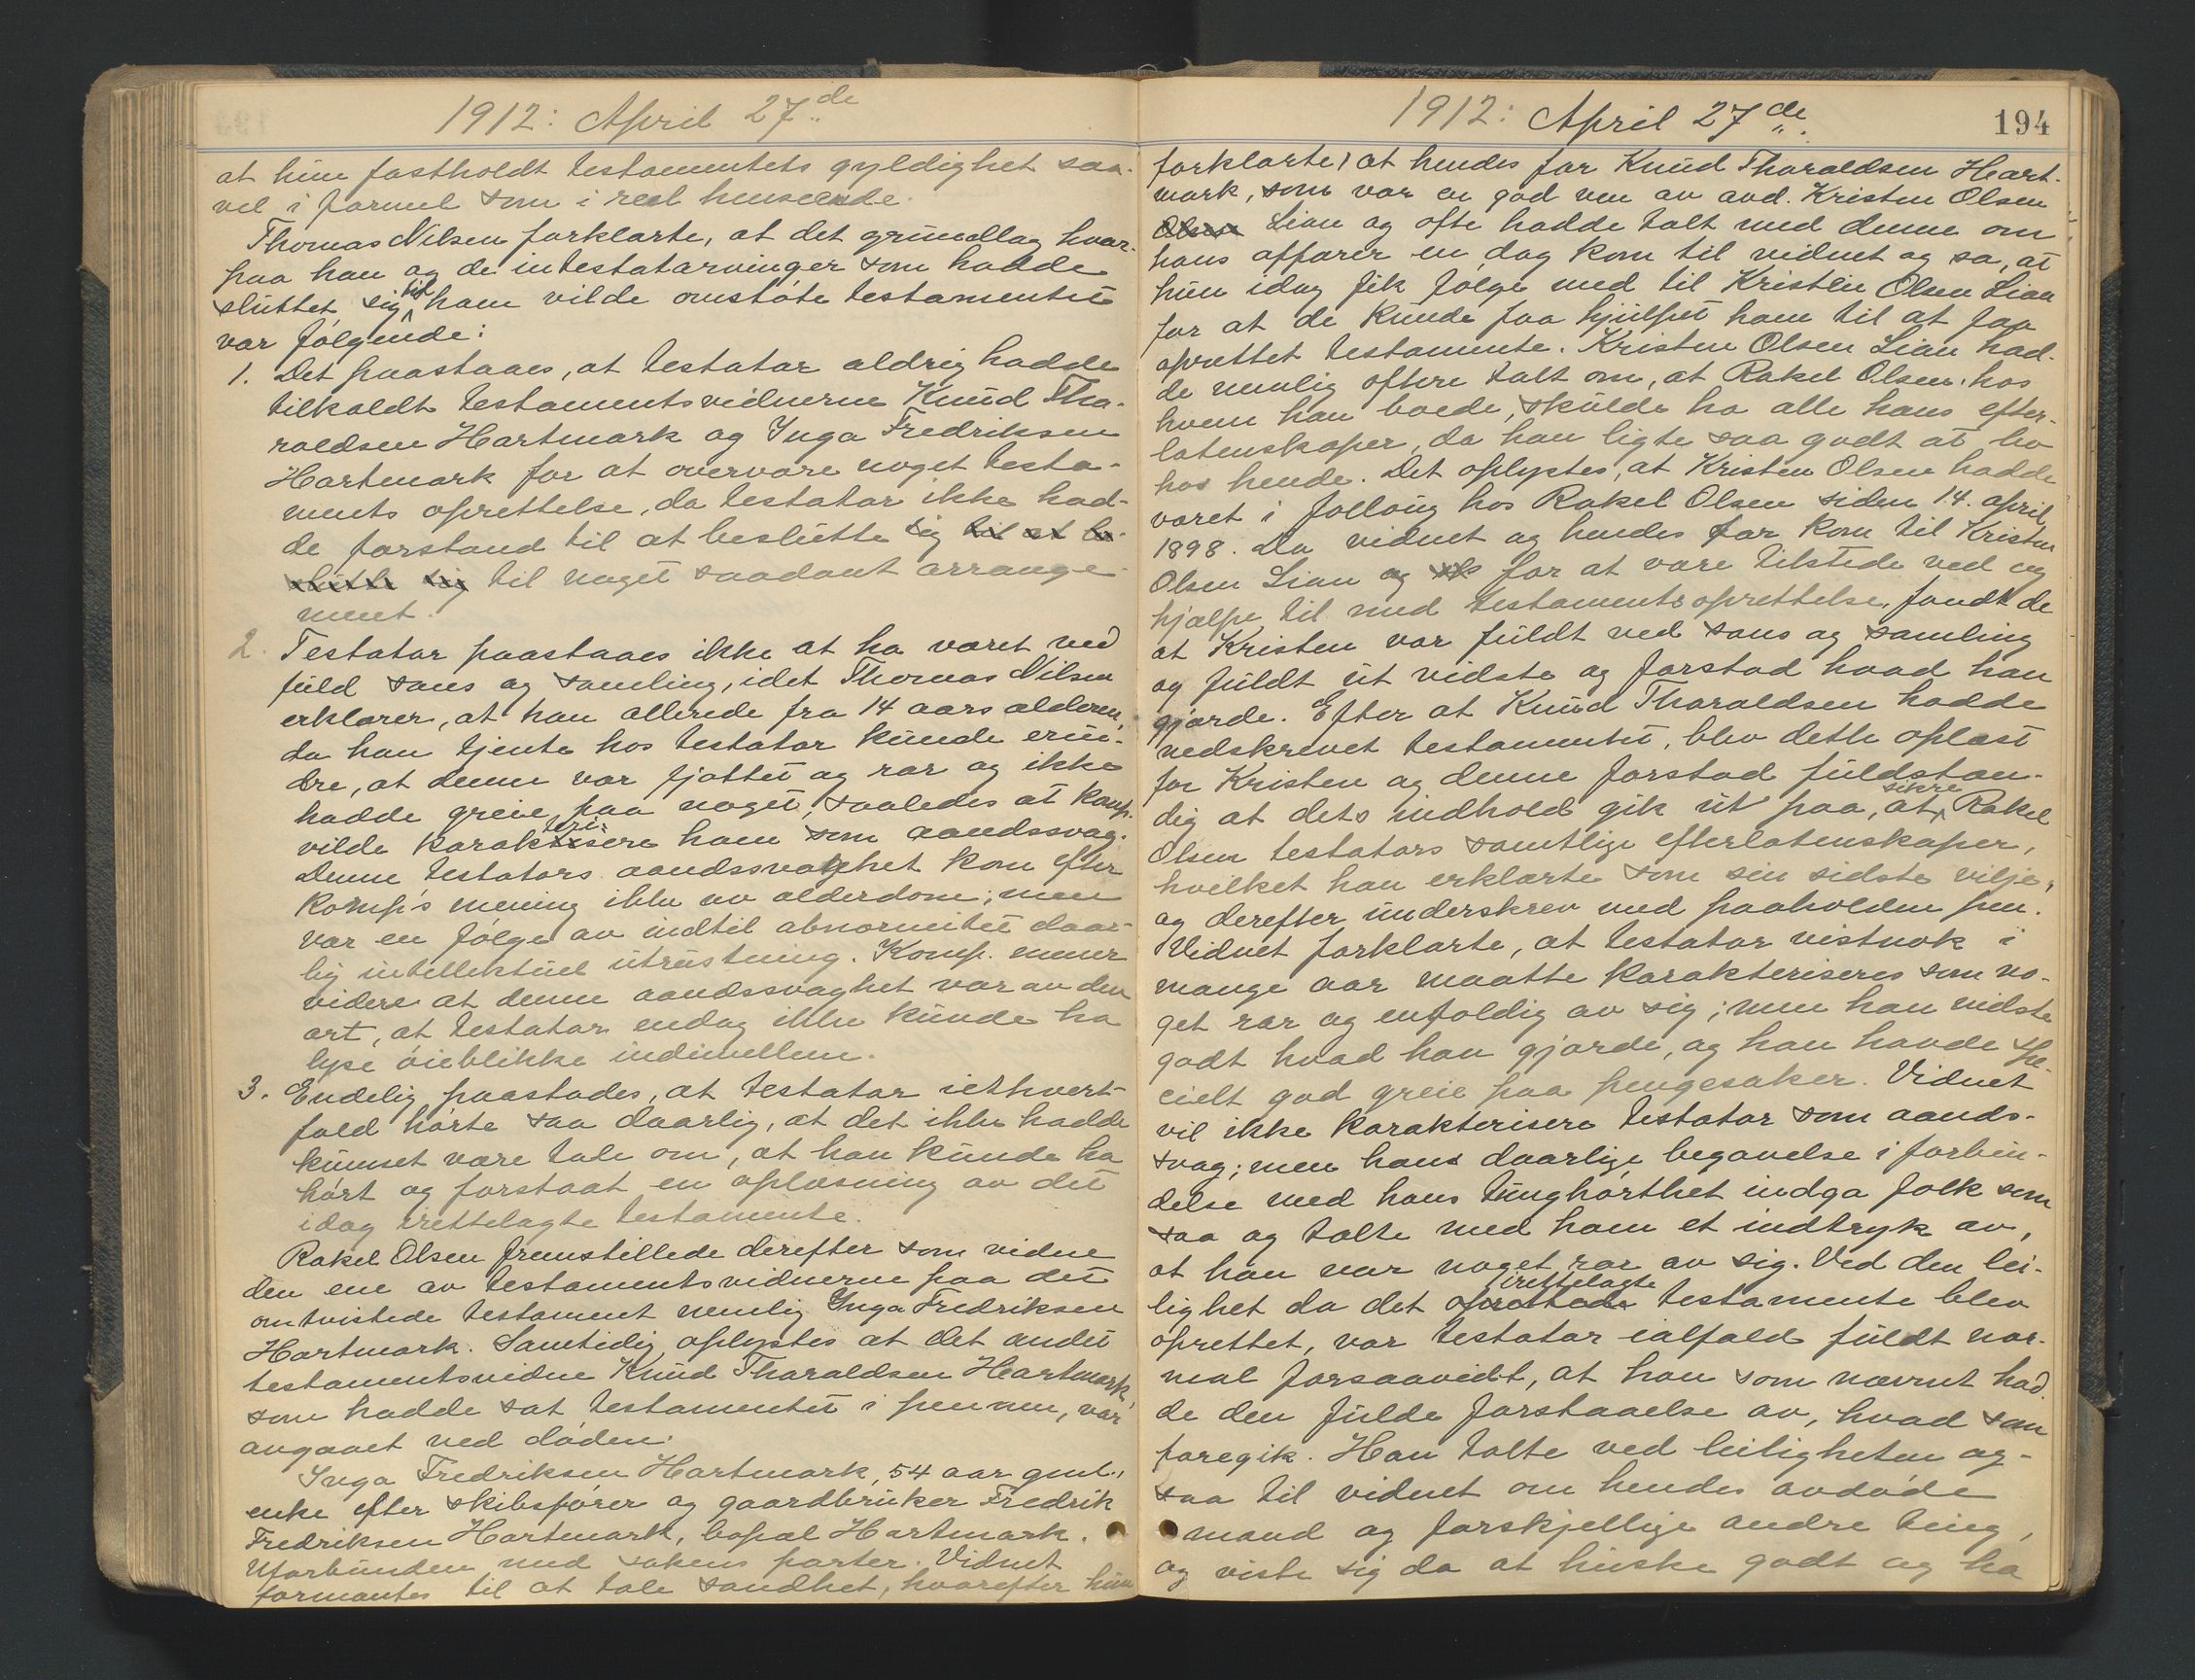 1912: April 27de
at hun fastholdt testamentets gyldighet saa-
vel i formel som i reel henseende.
Thomas Nilsen forklarte, at det grundlag hvor-
paa han og de intestatarvinger som hadde
sluttet sig til ham vilde omstøte testamentet
var følgende:
1. Det paastaaes, at testator aldrig hadde
tilkaldt testamentsvidnerne Knud Tha-
raldsen Hartmark og Inga Fredriksen
Hartmark for at overvære noget testa-
ments oprettelse, da testator ikke had-
de forstand til at beslutte sig til at be-
slutte sig til noget saadant arrange-
ment.
2. Testator paastaaes ikke at ha været ved
fuld sans og samling, idet Thomas Nilsen
erklærer, at han allerede fra 14 aars alderen,
da han tjente hos testator kunde erin-
dre, at denne var fjottet og rar og ikke
hadde greie paa noget, saaledes at komp.
vilde karakterisere ham som aandssvag.
Denne testators aandssvaghet kom efter
komp's mening ikke av alderdom; men
var en følge av indtil abnormitet daar-
lig intellektuel utrustning. Komp. mener
videre at denne aandssvaghet var av den
art, at testator endog ikke kunde ha
lyse øieblikke indimellem.
3. Endelig paastodes, at testator iethvert-
fald hørte saa daarlig, at det ikke hadde
kunnet være tale om, at han kunde ha
hørt og forstaat en oplæsning av det
idag irettelagte testamente.
Rakel Olsen fremstillede derefter som vidne
den ene av testamentsvidnerne paa det
omtvistede testament nemlig Inga Fredriksen
Hartmark. Samtidig oplystes at det andet
testamentsvidne Knud Tharaldsen Heartmark,
som hadde sat testamentet i pennen, var
avgaaet ved døden.
Inga Fredriksen Hartmark, 54 aar gml.,
enke efter skibsfører og gaardbruker Fredrik
Fredriksen Hartmark, bopæl Hartmark.
Uforbunden med sakens parter. Vidnet
formantes til at tale sandhet, hvorefter hun
1912: April 27de
194
forklarte, at hendes far Knud Tharaldsen Heart-
mark, som var en god ven av avd. Kristen Olsen
Olsen Lian og ofte hadde talt med denne om
hans affærer en dag kom til vidnet og sa, at
hun idag fik følge med til Kristen Olsen Lian
for at de kunde faa hjulpet ham til at faa
oprettet testamente. Kristen Olsen Lian had-
de nemlig oftere talt om, at Rakel Olsen, hos
hvem han boede, skulde ha alle hans efter-
latenskaper, da han ligte saa godt at bo
hos hende. Det oplystes, at Kristen Olsen hadde
været i føllaug hos Rakel Olsen siden 14. april
1898. Da vidnet og hendes far kom til Kristen
Olsen Lian og for at være tilstede ved og
hjælpe til med testamentsoprettelse, fandt de
at Kristen var fuldt ved sans og samling
og fuldt ut vidste og forstod hvad han
gjorde. Efter at Knud Tharaldsen hadde
nedskrevet testamentet, blev dette oplæst
for Kristen og denne forstod fuldstæn-
dig at dets indhold gik ut paa, at sikre Rakel
Olsen testators samtlige efterlatenskaper,
hvilket han erklærte som sin sidste vilje,
og derefter underskrev med paaholden pen.
Vidnet forklarte, at testator vistnok i
mange aar maatte karakteriseres som no-
get rar og enfoldig av sig; men han vidste
godt hvad han gjorde, og han havde spe-
cielt god greie paa pengesaker. Vidnet
vil ikke karakterisere testator som aands-
svag; men hans daarlige begavelse i forbin-
delse med hans tunghørthet indga folk som
saa og talte med ham et indtryk av,
at han var noget rar av sig. Ved den lei-
lighet da det irettelagte testamente blev
oprettet, var testator ialfald fuldt nor-
mal forsaavidt, at han som nævnt had-
de den fulde forstaaelse av, hvad som
foregik. Han talte ved leiligheten og-
saa til vidnet om hendes avdøde
mand og forskjellige andre ting,
og viste sig da at huske godt og ha